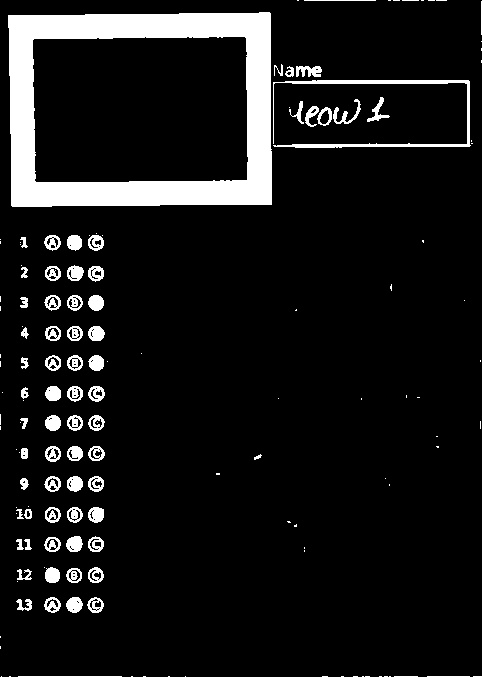 Name
yeow 1
1 A C
2 A C
3 A B
4 A B
5 A B
6 B C
7 B C
8 A C
9 A C
10 A B
11 A C
12 B C
13 A C